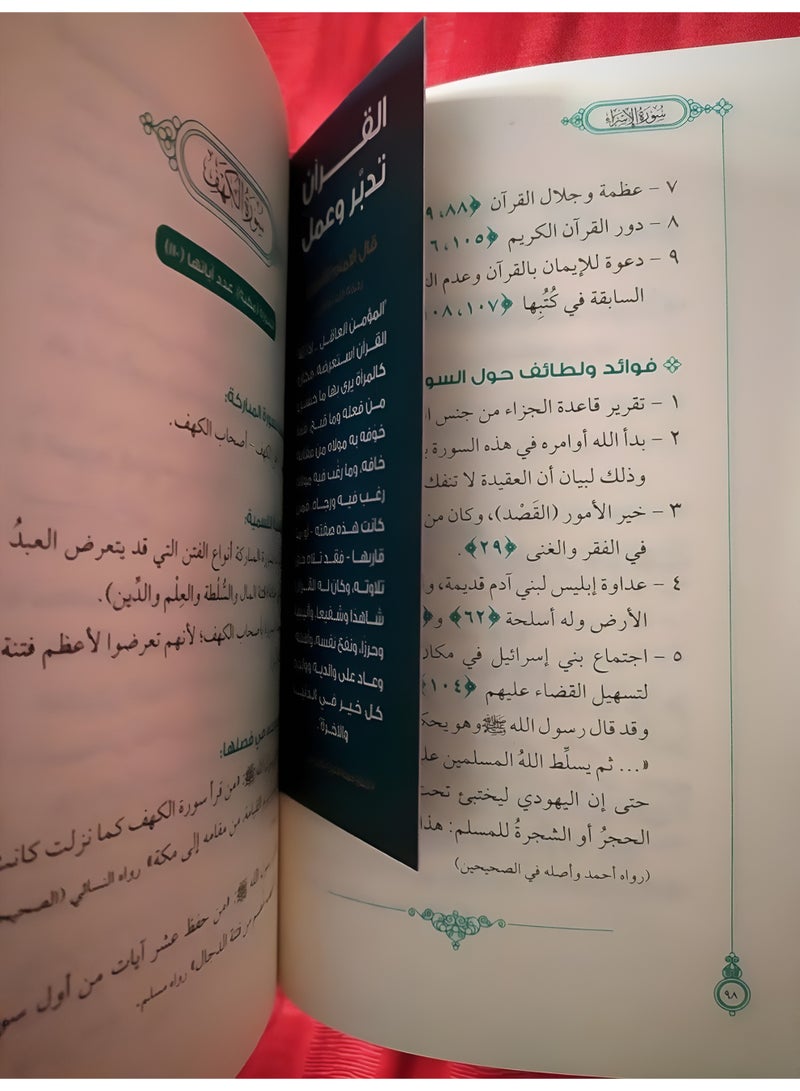 سُورَةُ الإِسْرَاءِ
٧ - عظمة وجلال القرآن ﴿٨٨، ٩
٨ - دور القرآن الكريم ﴿١٠٥، ٦
٩ - دعوة للإيمان بالقرآن وعدم
السابقة في كُتُبِها ﴿١٠٧، ٠٨
فوائد ولطائف حول السو
١ - تقرير قاعدة الجزاء من جنس
٢ - بدأ الله أوامره في هذه السورة
وذلك لبيان أن العقيدة لا تنفك
٣ - خير الأمور (القَصْد)، وكان من
في الفقر والغنى ﴿٢٩﴾.
٤ - عداوة إبليس لبني آدم قديمة، و
الأرض وله أسلحة ﴿٦٢﴾ و﴿
٥ - اجتماع بني إسرائيل في مكان
لتسهيل القضاء عليهم ﴿١٠٤﴾
وقد قال رسول الله ﷺ وهو يحك
«... ثم يسلِّط اللهُ المسلمين عل
حتى إن اليهودي ليختبئ تحت
الحجرُ أو الشجرةُ للمسلم: هذا
(رواه أحمد وأصله في الصحيحين)
٩٨
القرآن
تدبّر وعمل
قال
المؤمن العاقل
القرآن استعرضه، فكان
كالمرآة يرى بها ما حسن
من فعله وما قبح، فما
خوّفه به مولاه من عقابه
خافه، وما رغّب فيه مولاه
رغب فيه ورجاه، فمن
كانت هذه صفته - أو ما
قاربها - فقد تلاه حق
تلاوته، وكان له القرآن
شاهدا وشفيعا، وأنيسا
وحرزا، ونفع نفسه، وأهله
وعاد على والديه وولده
كل خير في الدنيا
والآخرة.
سُورَةُ الكَهْفِ
(مكية) عدد آياتها (١١٠)
المباركة:
الكهف - أصحاب الكهف.
التسمية:
المباركة أنواع الفتن التي قد يتعرض العبدُ
المال والسُّلطة والعِلْم والدِّين).
أصحاب الكهف؛ لأنهم تعرضوا لأعظم فتنة
في فضلها:
ﷺ: «من قرأ سورة الكهف كما نزلت كانت
القيامة، من مقامه إلى مكة» رواه النسائي
ﷺ: «من حفظ عشر آيات من أول
من فتنة الدجال» رواه مسلم.